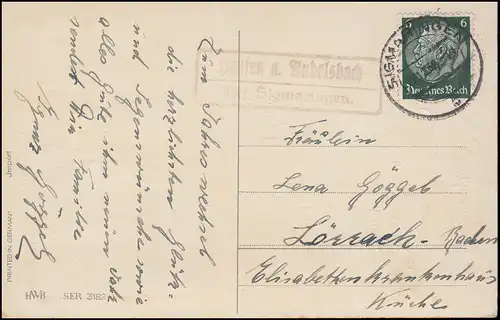 Zum Jahreswechsel
die herzlichsten Glück-
und Segenswünsche sowie
alles Gute im neuen Jahr
sendet Dir Familie
Göggel
Hausen a. Andelsbach
über Sigmaringen.
6 6
Deutsches Reich
SIGMARINGEN
Fräulein
Lena Göggel
Lörrach-Baden
Elisabethenkrankenhaus
Küche
Import
PRINTED IN GERMANY
HWB SER